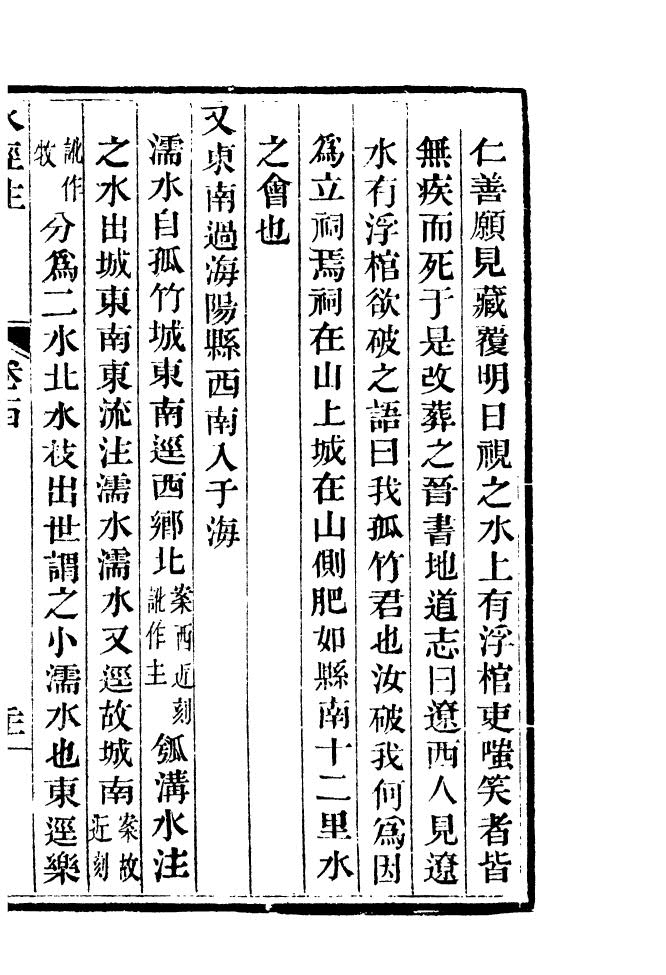 仁善願見藏覆明日視之水上有浮棺吏嗤笑者皆
無疾而死于是改葬之晉書地道志曰遼西人見遼
水有浮棺欲破之語曰我孤竹君也汝破我何爲因
爲立祠焉祠在山上城在山側肥如縣南十二里水
之會也
又東南過海陽縣西南入于海
濡水自孤竹城東南逕西鄉北案西近刻訛作主瓠溝水注
之水出城東南東流注濡水濡水又逕故城南案故近刻
訛作牧分爲二水北水枝出世謂之小濡水也東逕樂
水經注 卷十四